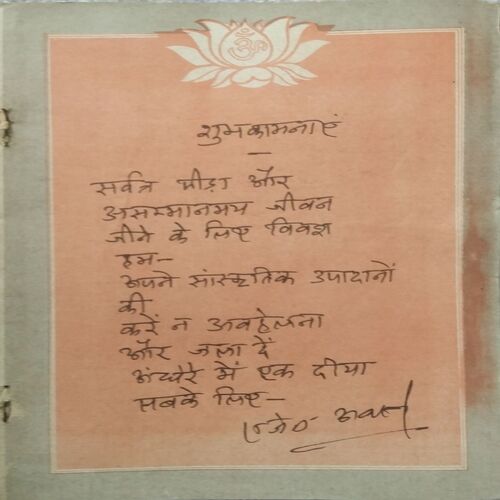 ॐ
शुभकामनाएं
—
सर्वत्र पीड़ा और
असम्मानमय जीवन
जीने के लिए विवश
हम—
अपने सांस्कृतिक उपादानों
की
करें न अवहेलना
और जला दें
अंधेरे में एक दीया
सबके लिए—